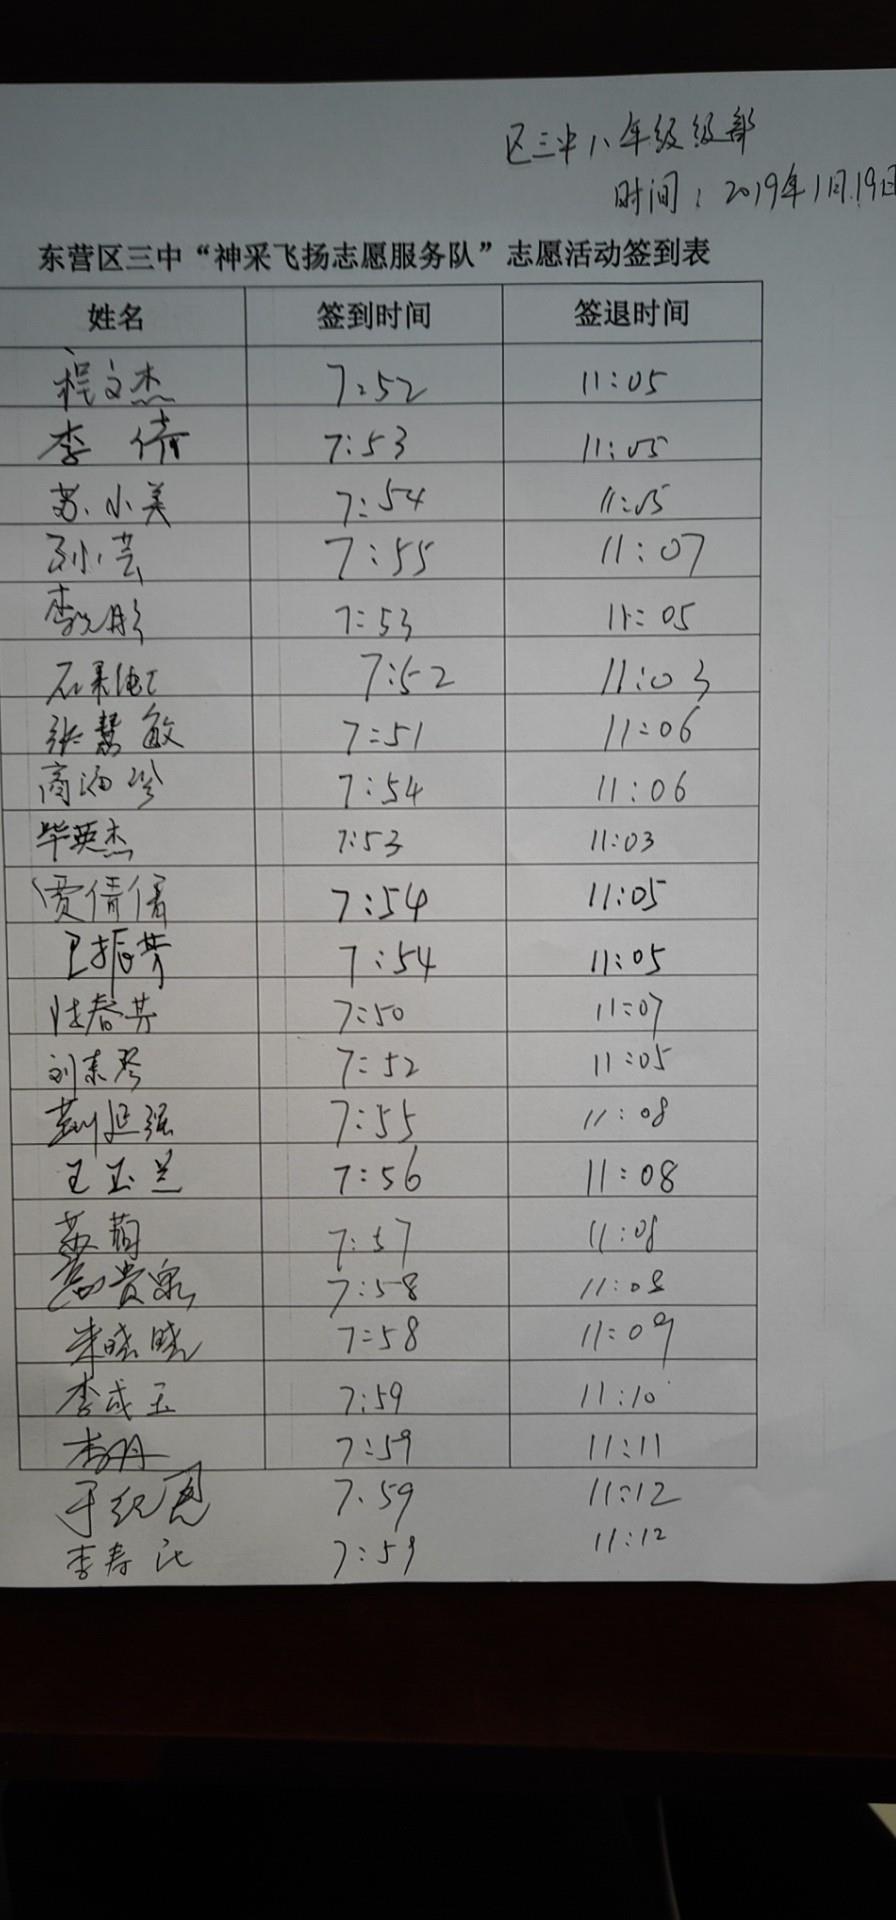 区三中八年级级部
时间：2019年1月19日
东营区三中“神采飞扬志愿服务队”志愿活动签到表
姓名 签到时间 签退时间
程文杰 7:52 11:05
李倩 7:53 11:05
苏小美 7:54 11:05
孙小芸 7:55 11:07
李彤 7:53 11:05
7:52 11:03
张慧敏 7:51 11:06
商海 7:54 11:06
毕英杰 7:53 11:03
贾倩倩 7:54 11:05
王振芳 7:54 11:05
陈春芳 7:50 11:07
刘素琴 7:52 11:05
延强 7:55 11:08
王玉兰 7:56 11:08
苏萌 7:57 11:08
高贵泉 7:58 11:08
朱晓晓 7:58 11:09
李成玉 7:59 11:10
李丹 7:59 11:11
于纪恩 7.59 11:12
李寿 7:59 11:12